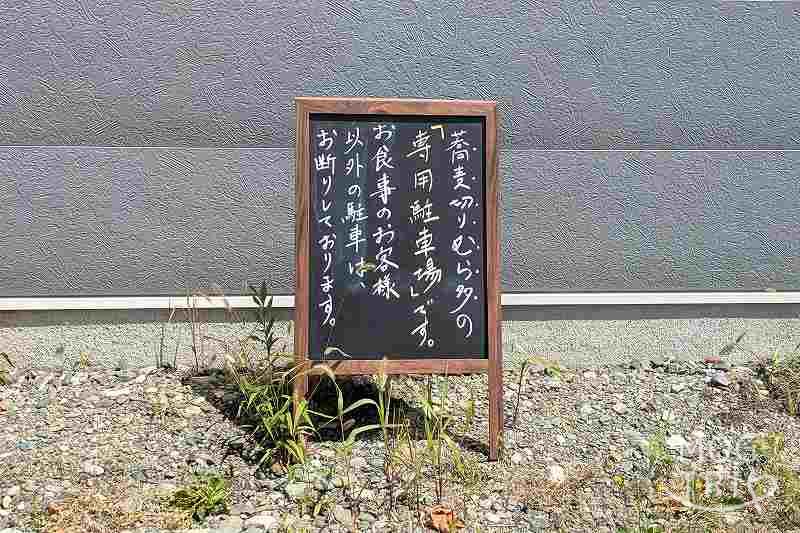 蕎麦切りむら多の
「専用駐車場」です。
お食事のお客様
以外の駐車は、
お断りしております。
MOG TRIP